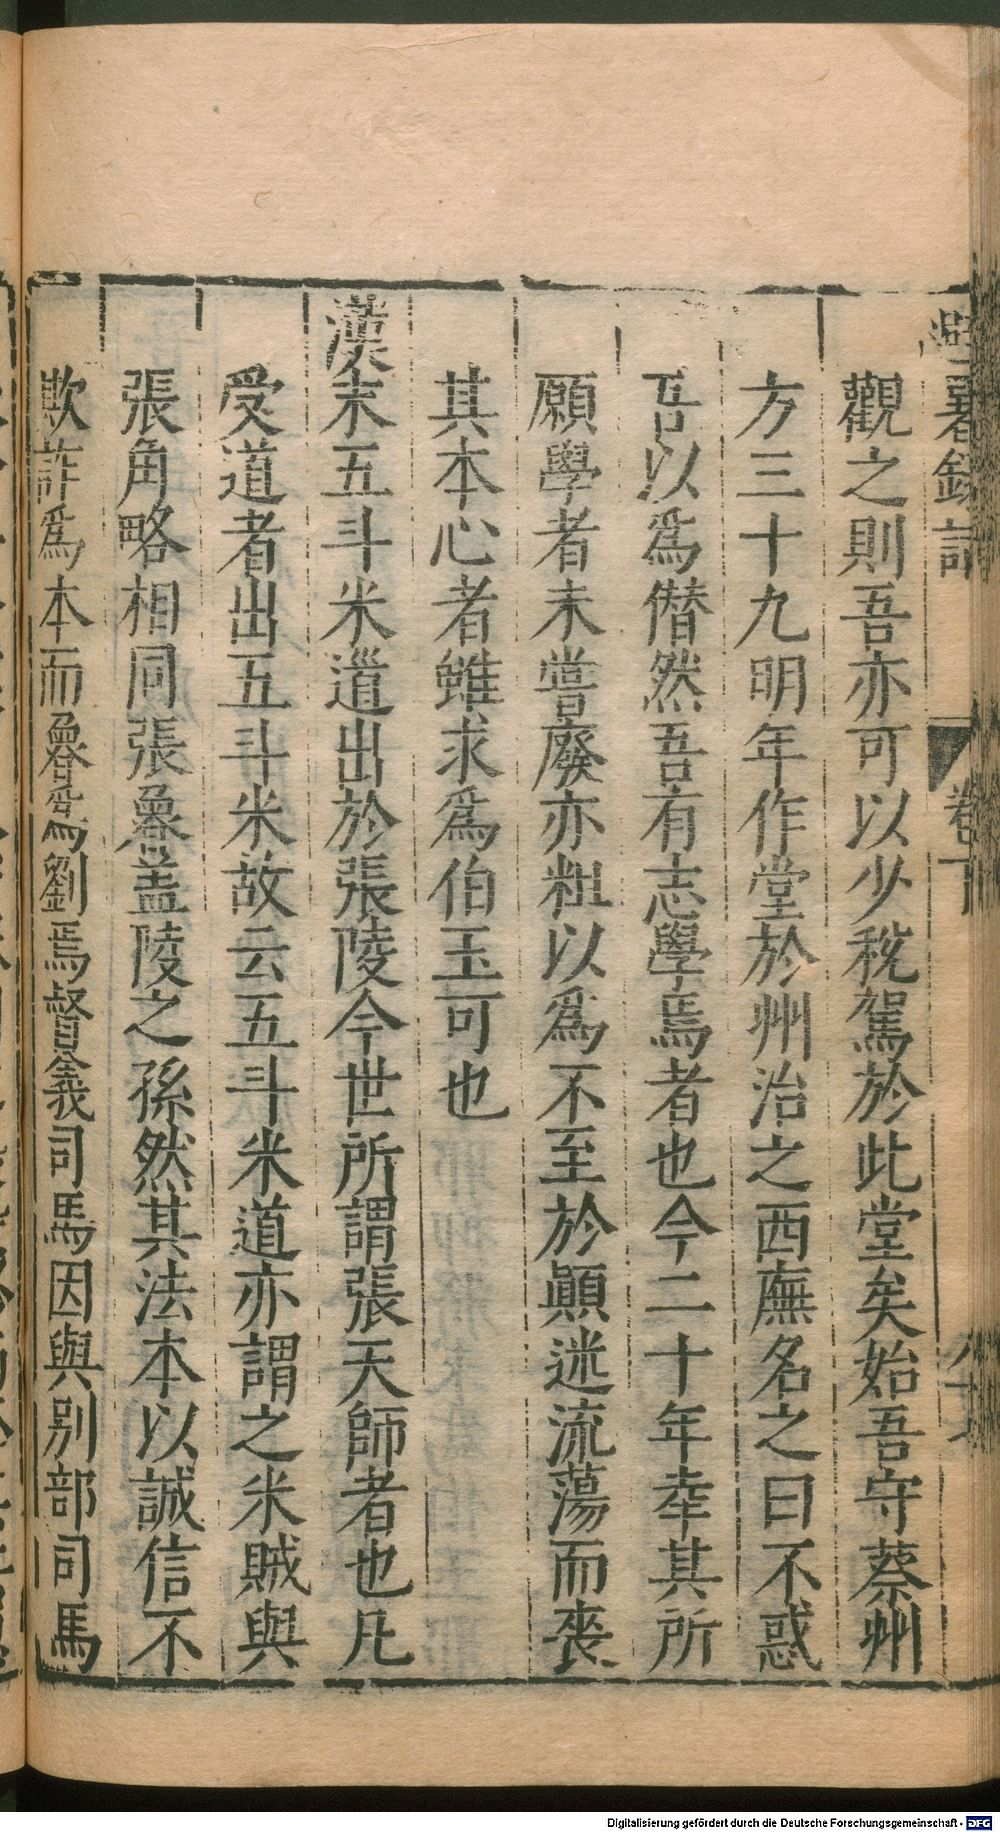 避暑錄話 卷下
觀之則吾亦可以少稅駕於此堂矣始吾守蔡州
方三十九明年作堂於州治之西廡名之曰不惑
吾以爲僭然吾有志學焉者也今二十年幸其所
願學者未嘗廢亦粗以爲不至於顚迷流蕩而喪
其本心者雖求爲伯玉可也
漢末五斗米道出於張陵今世所謂張天師者也凡
受道者出五斗米故云五斗米道亦謂之米賊與
張角略相同張魯盖陵之孫然其法本以誠信不
欺詐爲本而魯爲劉焉督義司馬因與别部司馬
Digitalisierung gefördert durch die Deutsche Forschungsgemeinschaft - DFG